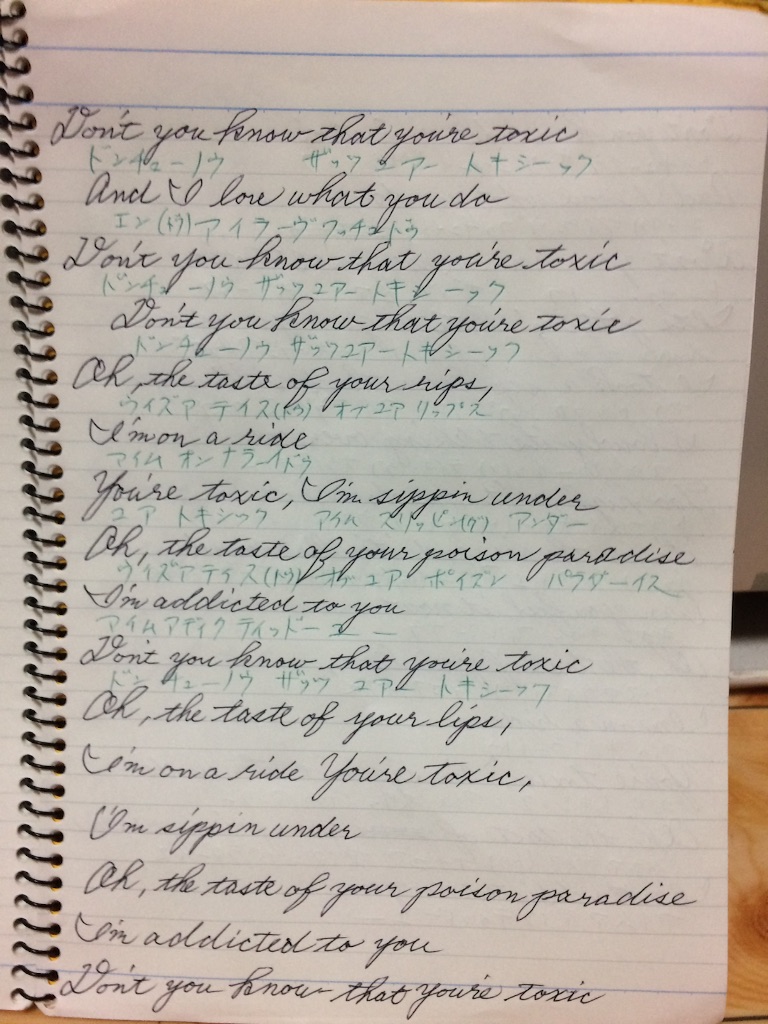 Don't you know that you're toxic
ドンチューノウ ザッツ ユアー トキシーック
And I love what you do
エン(ドゥ)アイラーヴワッチュドゥ
Don't you know that you're toxic
ドンチューノウ ザッツユアートキシーック
Don't you know that you're toxic
ドンチューノウ ザッツユアートキシーック
Oh, the taste of your rips,
ウイズア テイス(トゥ) オブユア リップス
I'm on a ride
アイム オンナライドゥ
You're toxic, I'm sippin under
ユア トキシック アイム スリッピン(グ) アンダー
Oh, the taste of your poison paradise
ウイズアテイス(トゥ) オブ ユア ポイズン パラダーイス
I'm addicted to you
アイムアディクティッドー ユー
Don't you know that you're toxic
ドンチューノウ ザッツ ユアー トキシーック
Oh, the taste of your lips,
I'm on a ride You're toxic,
I'm sippin under
Oh, the taste of your poison paradise
I'm addicted to you
Don't you know that you're toxic